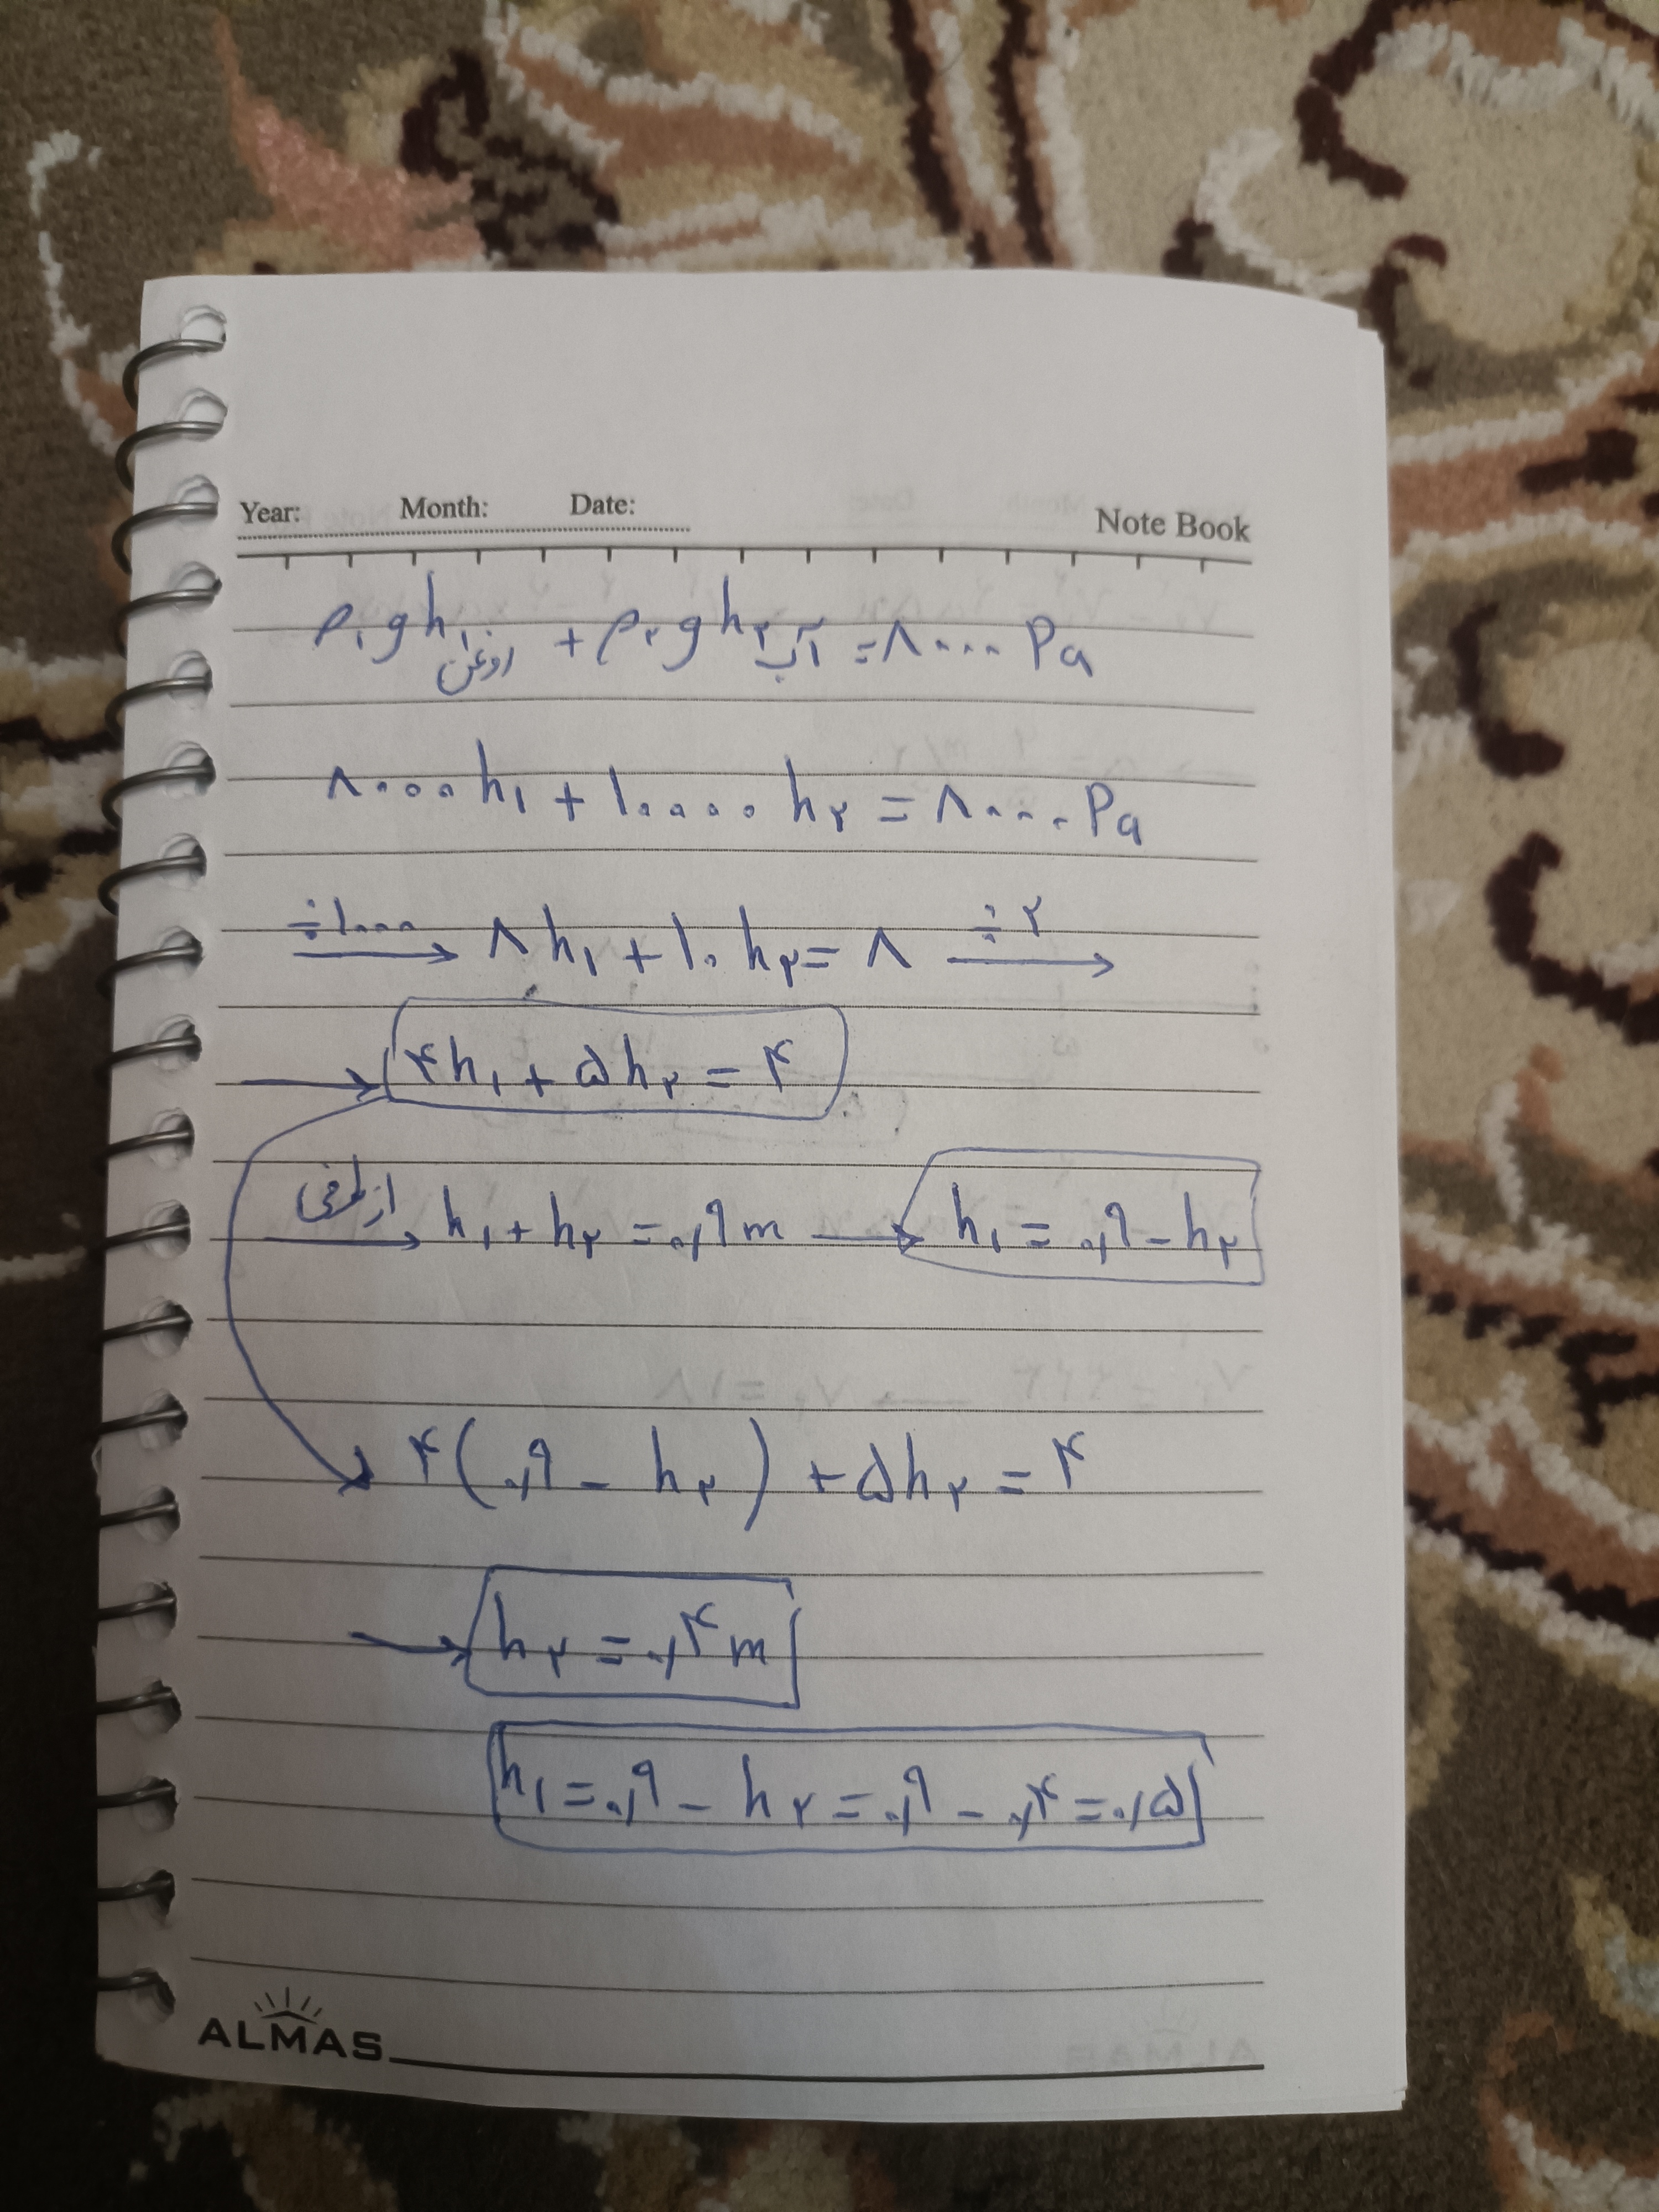 Year: Month: Date: Note Book
ρ₁gh₁ روغن + ρ₂gh₂ آب = ۸۰۰۰ Pa
۸۰۰۰h₁ + ۱۰۰۰۰h₂ = ۸۰۰۰ Pa
÷۱۰۰۰ → ۸h₁ + ۱۰h₂ = ۸ ÷۲ →
→ ۴h₁ + ۵h₂ = ۴
از طرفی → h₁ + h₂ = ۰٫۹m → h₁ = ۰٫۹ - h₂
۴(۰٫۹ - h₂) + ۵h₂ = ۴
→ h₂ = ۰٫۴m
h₁ = ۰٫۹ - h₂ = ۰٫۹ - ۰٫۴ = ۰٫۵
ALMAS